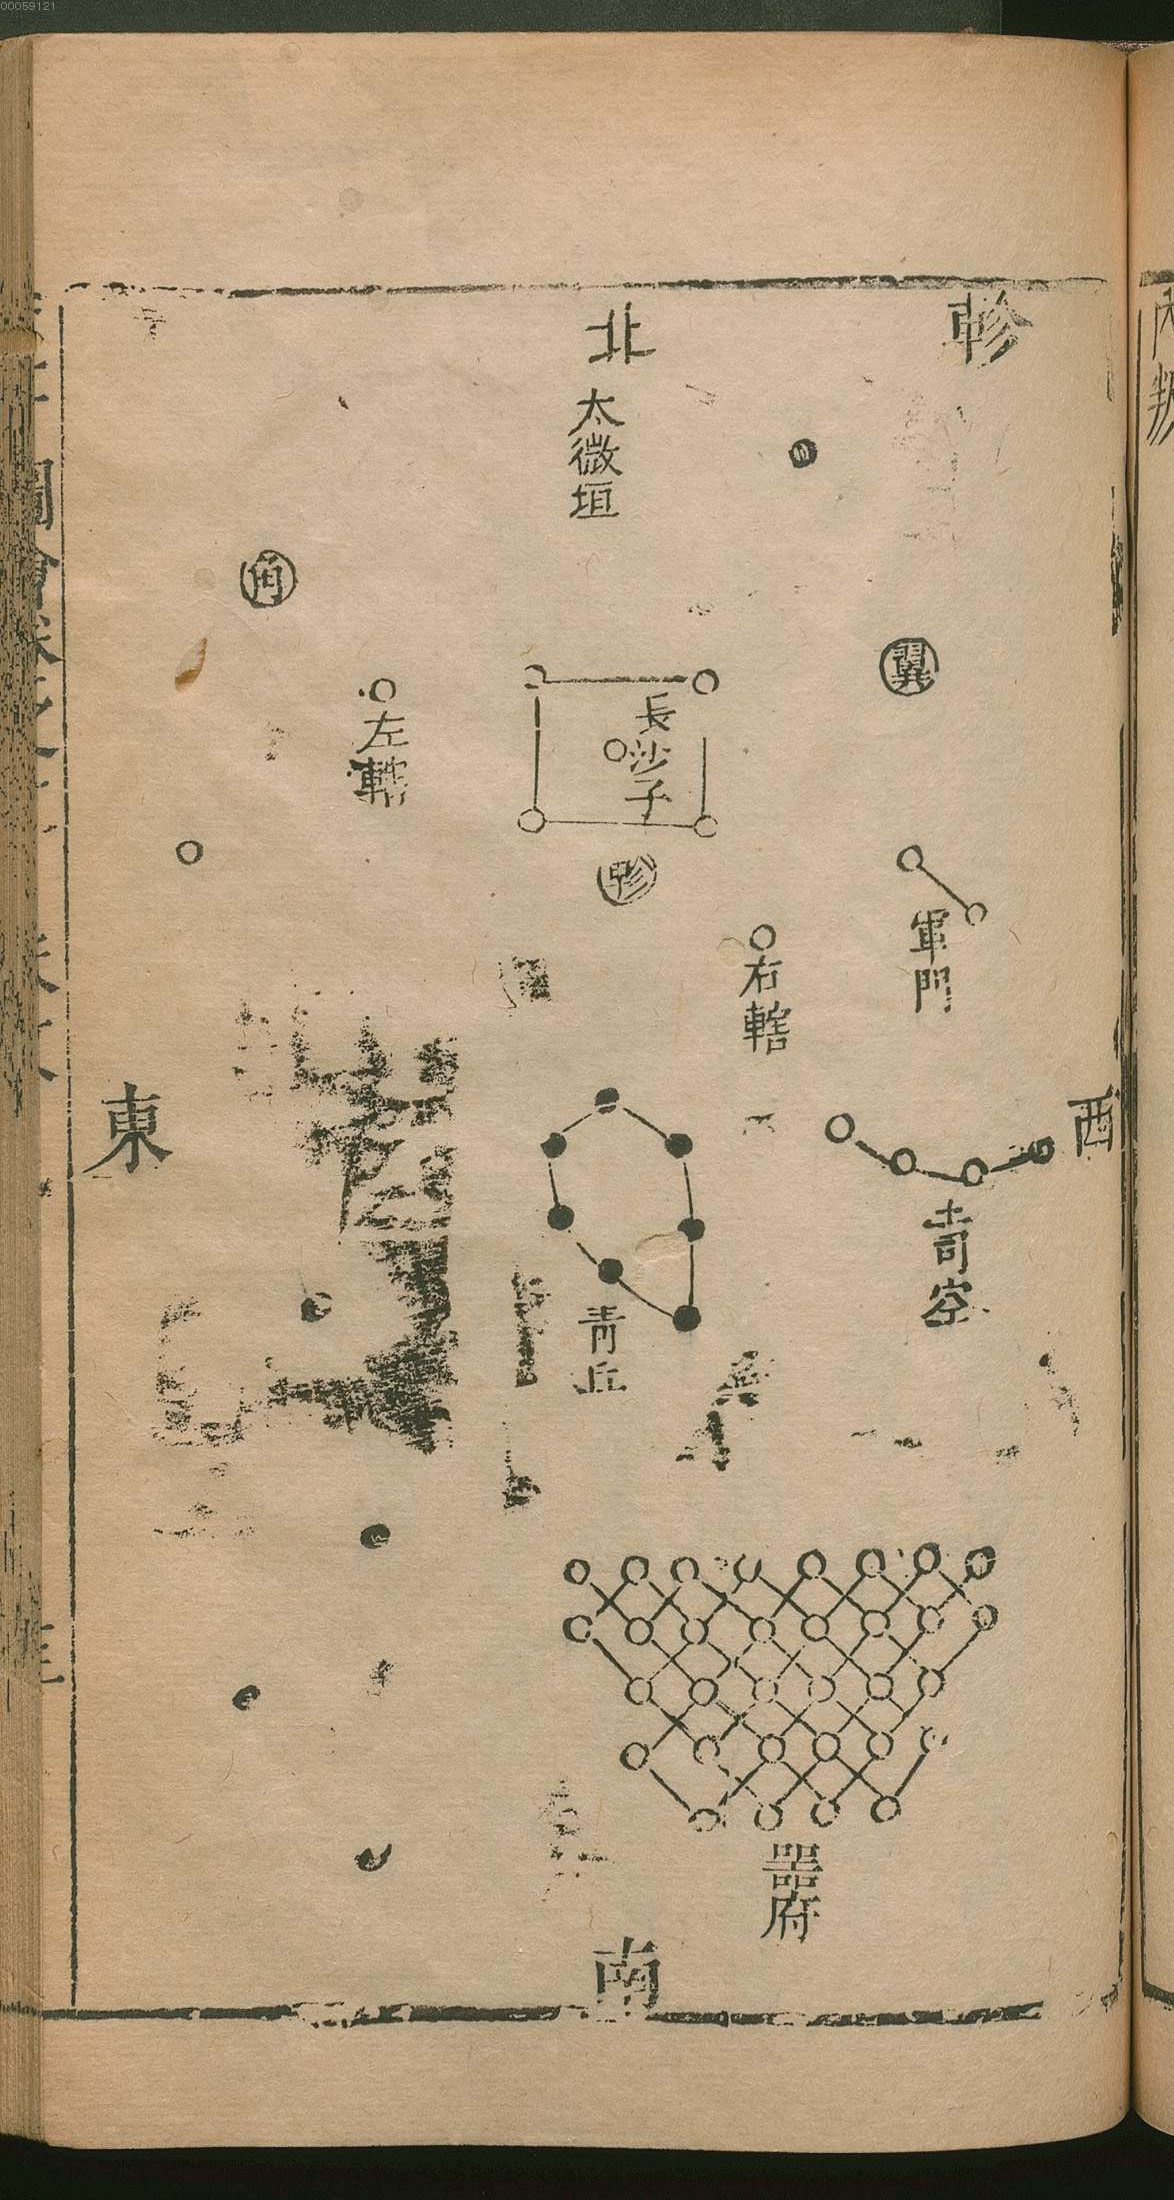 00059121
軫
北
太微垣
角
翼
長沙子
左轄
軫
軍門
右轄
東
西
土司空
青丘
器府
南
圖會